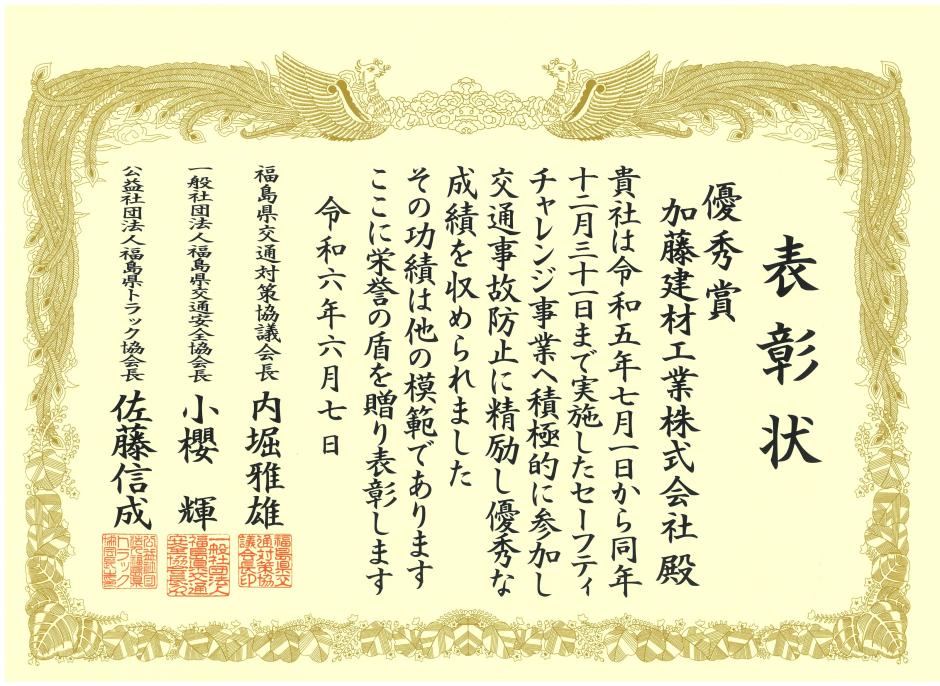 表彰状
優秀賞
加藤建材工業株式会社殿
貴社は令和五年七月一日から同年
十二月三十一日まで実施したセーフティ
チャレンジ事業へ積極的に参加し
交通事故防止に精励し優秀な
成績を収められました
その功績は他の模範であります
ここに栄誉の盾を贈り表彰します
令和六年六月七日
福島県交通対策協議会長 内堀雅雄
福島県交
通対策協
議会長印
一般社団法人福島県交通安全協会長 小櫻 輝
一般社団法人
福島県交通
安全協会長之印
公益社団法人福島県トラック協会長 佐藤信成